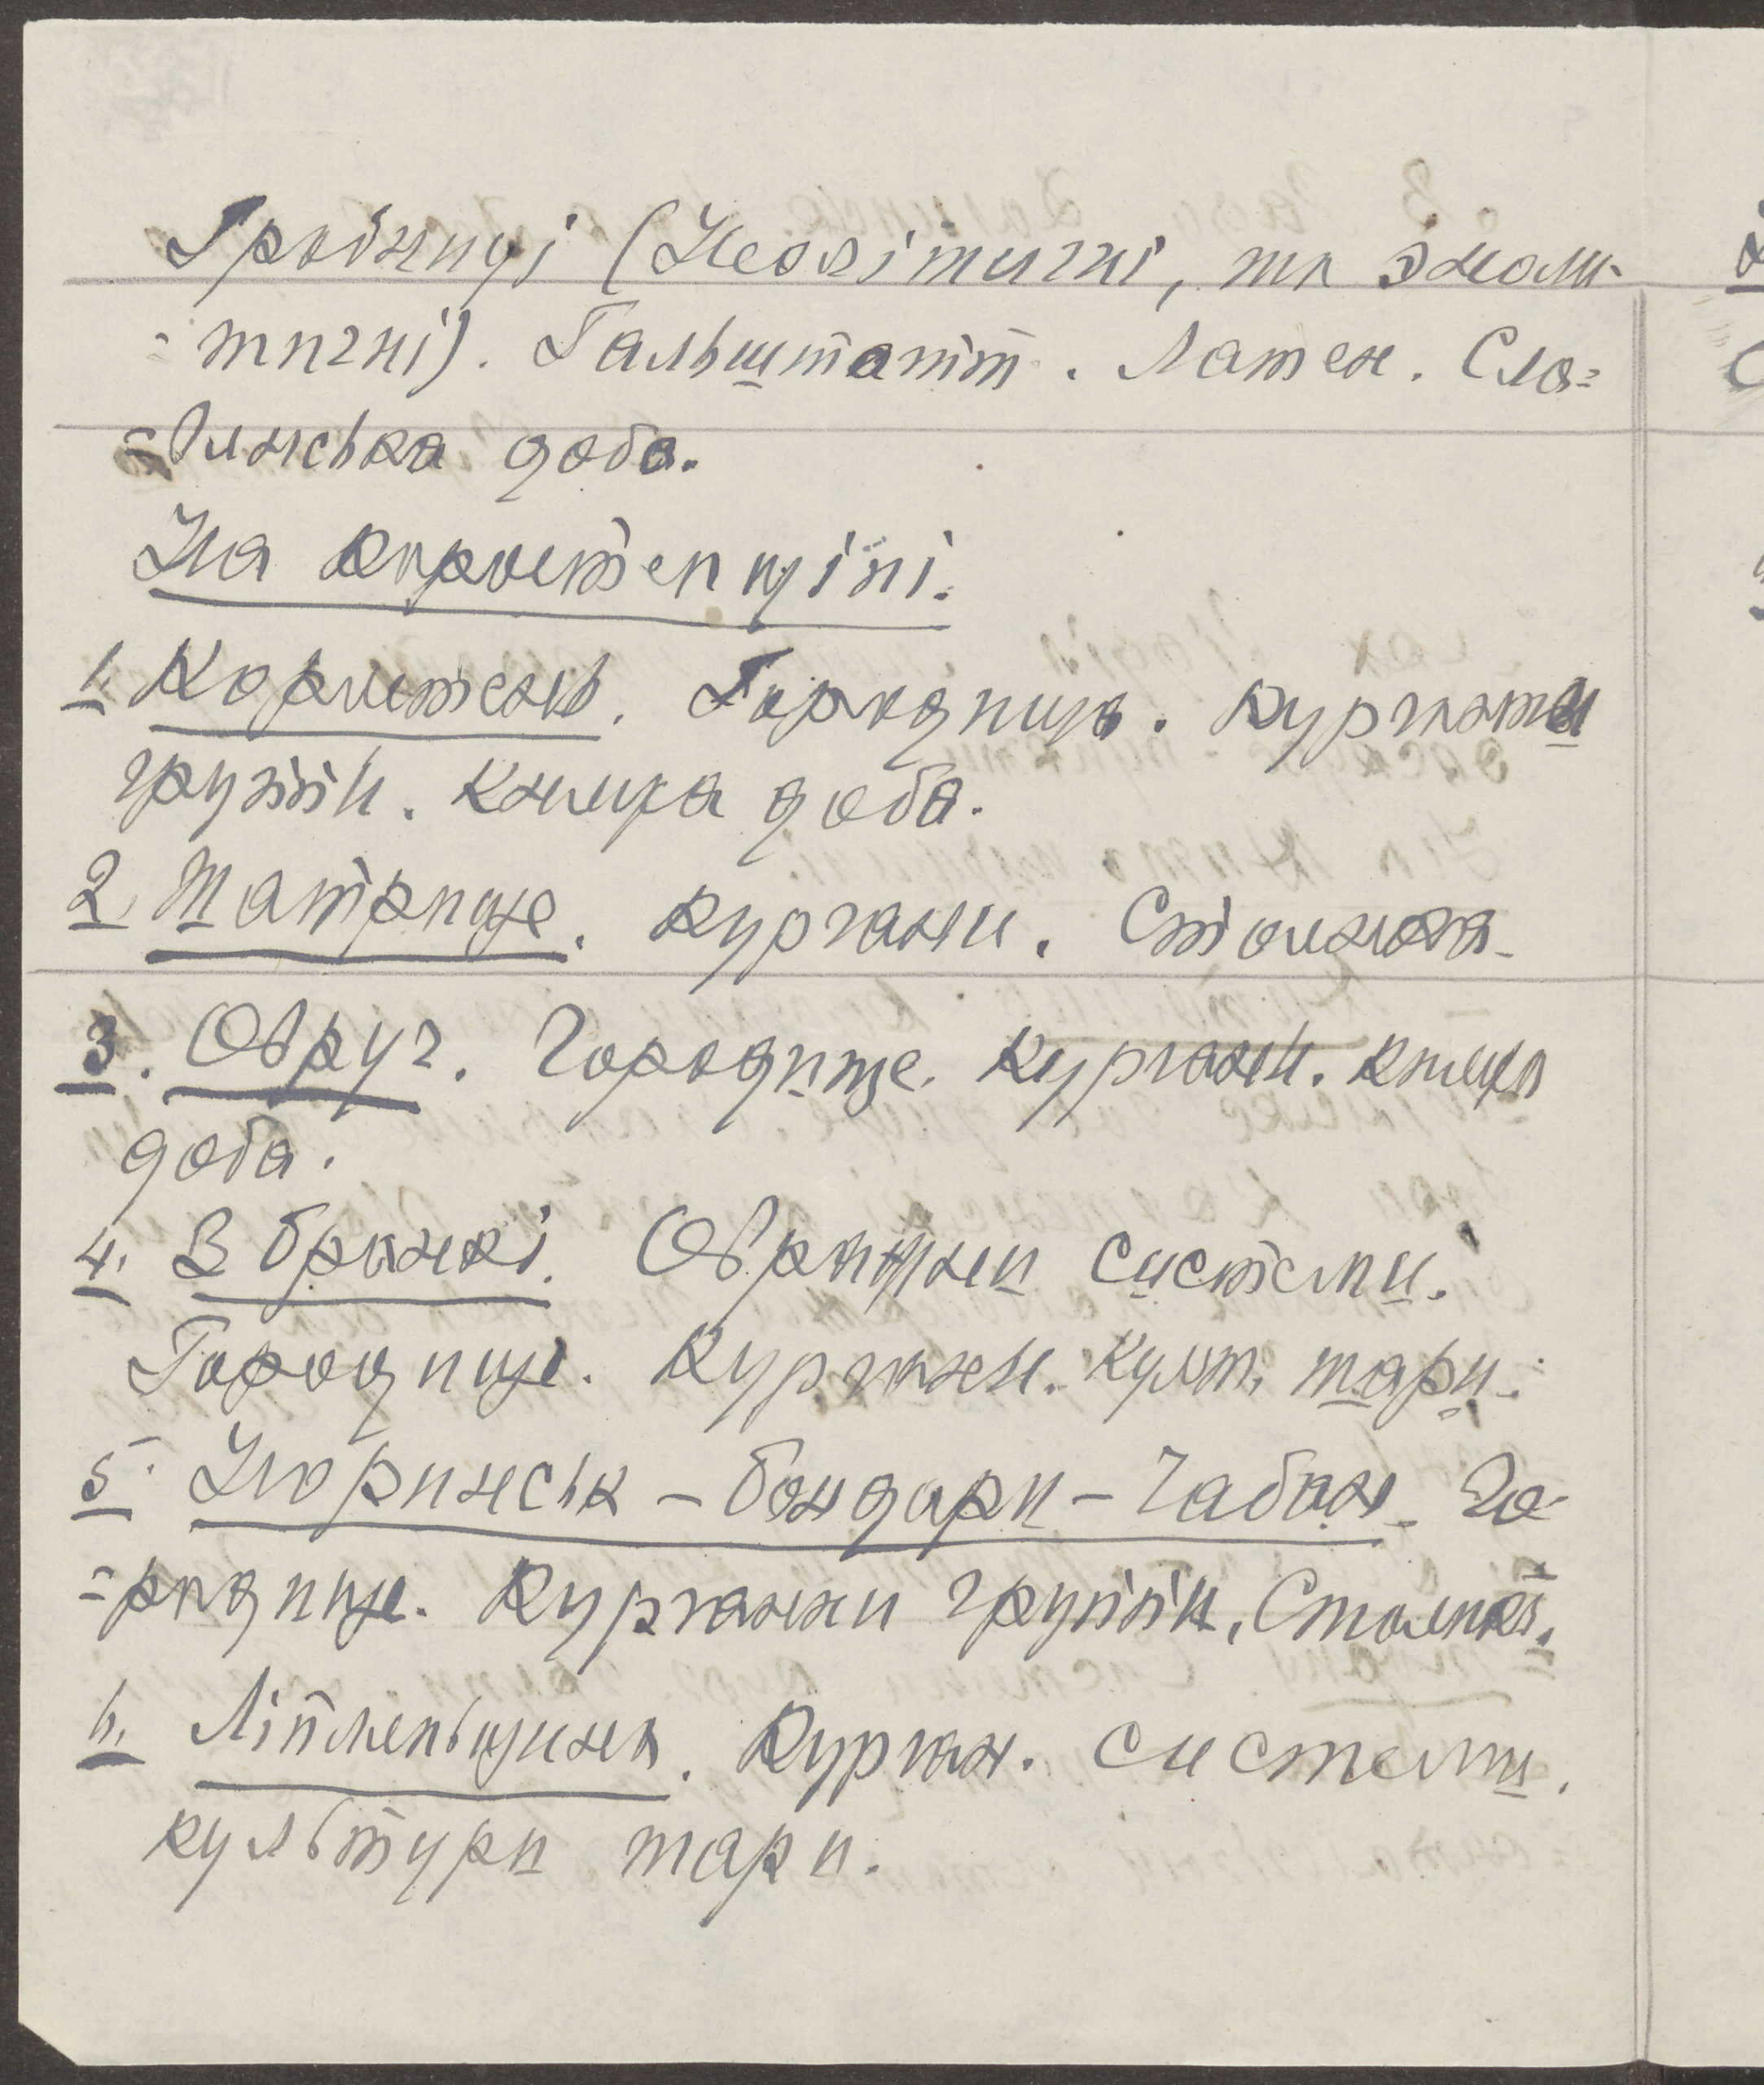 Гробниці (Неолітичні, та энолі-
=тичні). Гальштатт. Латен. Сло=
=вянська доба.
На Коростенщіні.
1. Коростень. Городищо. Кургани
групи. Княжа доба.
2. Татрище. Кургани. Стоянка.
3. Овруч. Городище. Кургани. Княжа
доба.
4. Збранкі. систєми.
Городище. Кургани. Культ. тари.
5. Норинськ - Бондари - Чабан. Го-
=родище. Кургани групи, Стоянкі.
6. Курган. системи,
культури тари.